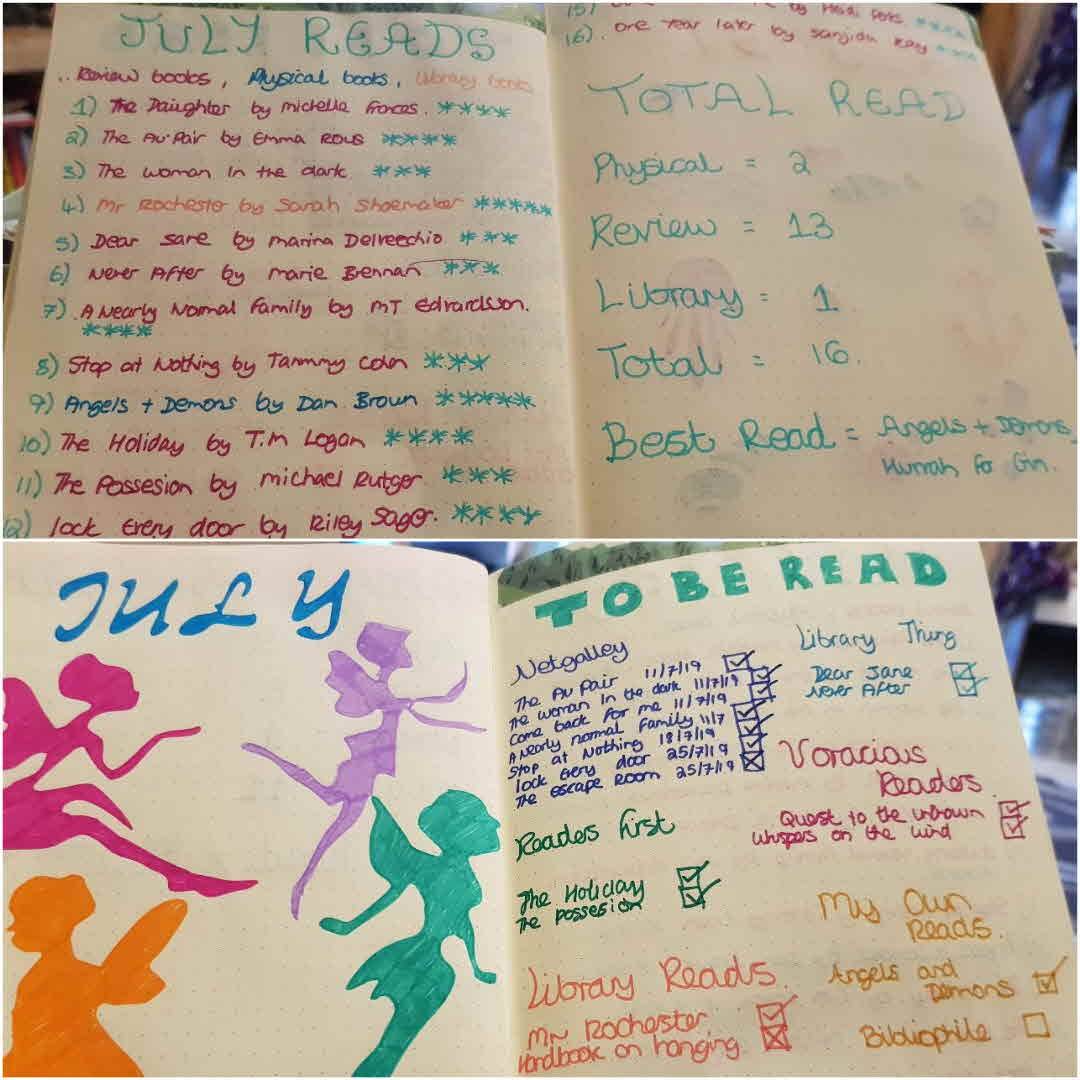 JULY READS
Review books, Physical books, Library books
1) The Daughter by michelle Frances. ****
2) The Au Pair by Emma Rous ****
3) The woman in the dark ***
4) Mr Rochester by Sarah Shoemaker *****
5) Dear Jane by marina Delvecchio ***
6) Never After by marie Brennan ***
7) A Nearly Normal Family by MT Edvardsson.
****
8) Stop at Nothing by Tammy Cohn ***
9) Angels + Demons by Dan Brown *****
10) The Holiday by T.M Logan ****
11) The Possesion by michael Rutger ***
12) lock Every door by Riley Sager. ****
15) by Heidi
16). one Year later by Sanjida Kay
TOTAL READ
Physical = 2
Review = 13
Library = 1
Total = 16.
Best Read = Angels + Demons
Hurrah for Gin.
JULY
TO BE READ
Netgalley
The Au Pair 11/7/19
The woman in the dark 11/7/19
Come back for me 11/7/19
A nearly normal Family 11/7
Stop at Nothing 18/7/19
lock Every door 25/7/19
The Escape Room 25/7/19
Readers First
The Holiday
The possesion
Library Reads.
Mr Rochester
Handbook on hanging
Library Thing
Dear Jane
Never After
Voracious
Readers
Quest to the unknown
whispers on the wind
My Own
Reads.
Angels and
Demons
Bibliophile